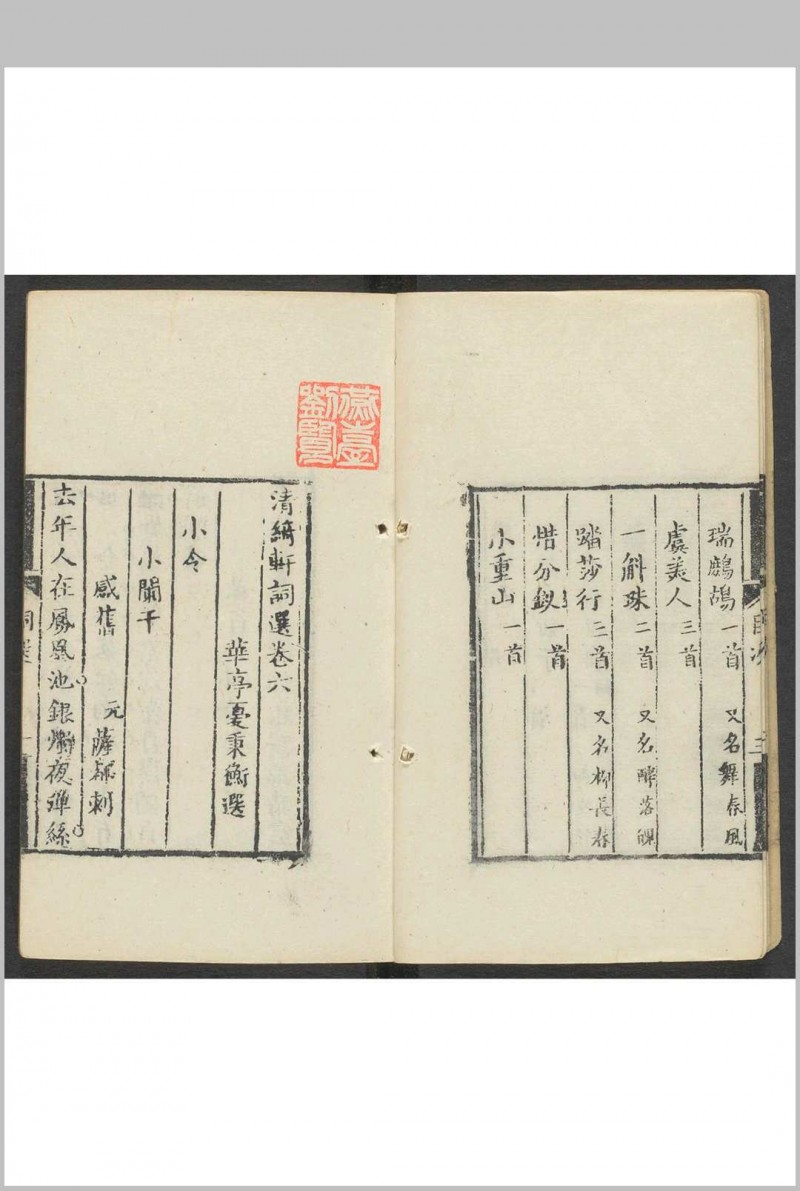 瑞鷓鴣一首 又名舞春風
虞美人三首
一斛珠二首 又名醉落魄
踏莎行三首 又名柳長春
惜分釵一首
小重山一首
目次
三
燕臺
劉覽
清綺軒詞選卷六
華亭夏秉衡選
小令
小闌干
感舊 元 薩都刺
去年人在鳳凰池銀燭夜彈絲
詞選